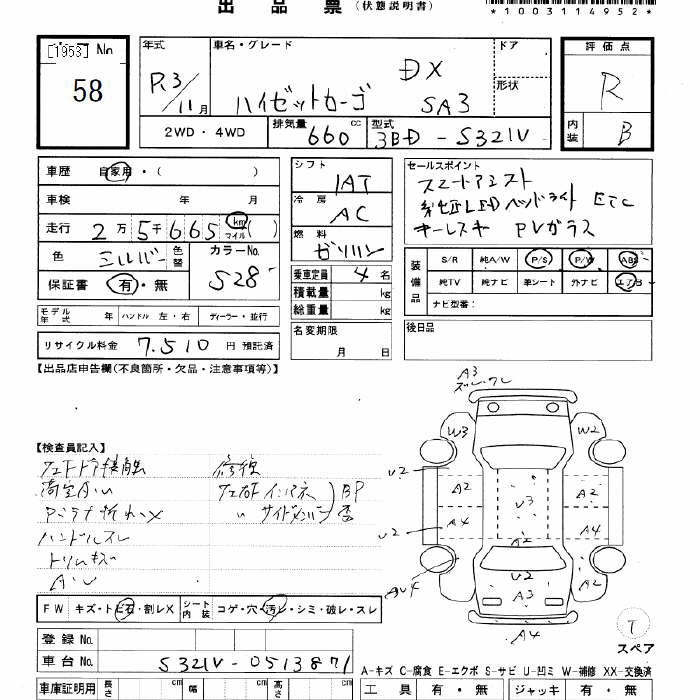 出品票(状態説明書)
*1003114952*
[1953] No
58
年式
R3/11月
車名・グレード
DX
ハイゼットカーゴ
SA3
ドア
形状
評価点
R
内装
B
2WD・4WD
排気量
660 cc
型式
3BD-S321V
車歴
自家用・( )
車検 年 月
走行 2万5千665 km マイル ( )
色 シルバー 色替
カラーNo.
S28
保証書 有・無
シフト
IAT
冷房
AC
燃料
ガソリン
乗車定員 4名
積載量 kg
総重量 kg
名変期限
月 日
セールスポイント
スマートアシスト
純正LEDヘッドライト ETC
キーレスキー PVガラス
装備品
S/R 純A/W P/S P/W ABS
純TV 純ナビ 革シート 外ナビ エアB
ナビ型番:
後日品
モデル年式 年 ハンドル 左・右 ディーラー・並行
リサイクル料金 7,510 円 預託済
【出品店申告欄(不良箇所・欠品・注意事項等)】
【検査員記入】
修復
ハンドルスレ
トリムキズ
FW キズ・トビ石・割レX シート内装 コゲ・穴・汚レ・シミ・破レ・スレ
登録No.
車台No. S321V-0513871
車庫証明用 長さ cm 幅 cm 高さ cm
A3
W3
W2
U2
A2
U3
A2
U2
A4
A2
A4
U2
A2
A3
A4
T
スペア
A-キズ C-腐食 E-エクボ S-サビ U-凹ミ W-補修 XX-交換済
工具 有・無 ジャッキ 有・無